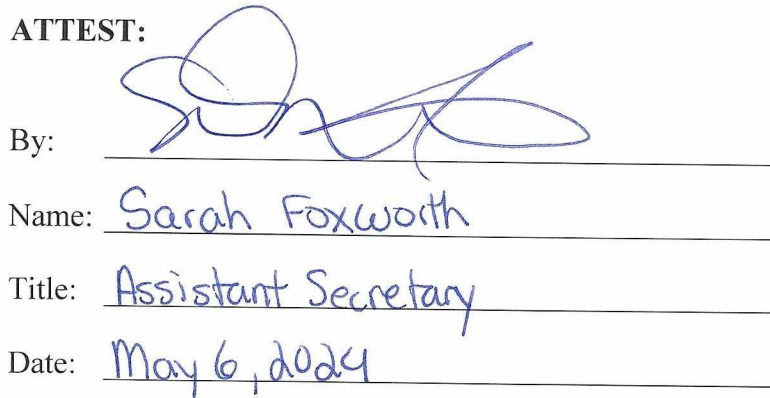 ATTEST:
By:
Name: Sarah Foxworth
Title: Assistant Secretary
Date: May 6, 2024